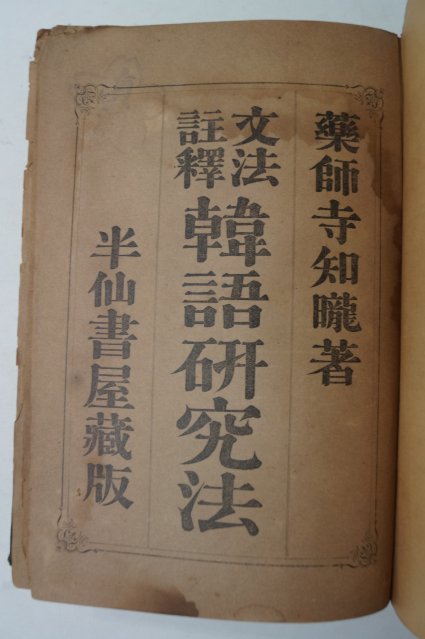 藥師寺知曨著
文法
註釋
韓語研究法
半仙書屋藏版